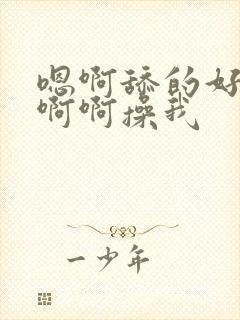 嗯啊舔的好
啊啊操我
一少年